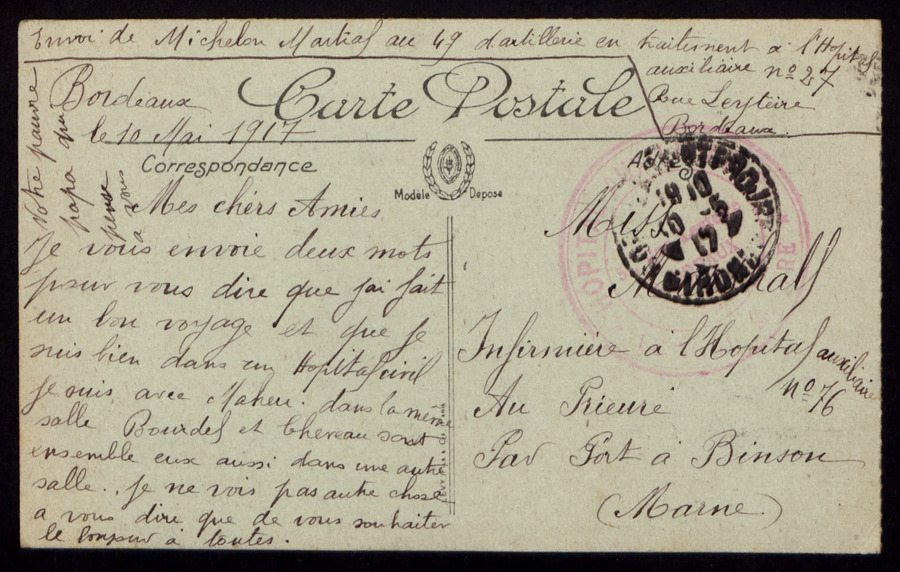 Envoi de Michelon Martial au 49 d'artillerie en traitement à l'Hopital
auxiliaire n° 27
Rue Leyteire
Bordeaux.
Carte Postale
Bordeaux
le 10 Mai 1917
Correspondance
Modèle Déposé
Mes chérs Amies,
Je vous envoie deux mots
pour vous dire que j'ai fait
un bon voyage et que je
suis bien dans un Hopital civil
je suis avec Maheu. dans la même
salle Bourdel et Chereau sont
ensemble eux aussi dans une autre
salle. Je ne vois pas autre chose
a vous dire que de vous souhaiter
le bonjour à toutes.
Votre pauvre
papa qui
pense
a vous
Miss
Infirmière à l'Hopital auxiliaire
n° 76
Au Prieuré
Par Port à Binson
(Marne)
HOPIT
17
GIRONDE